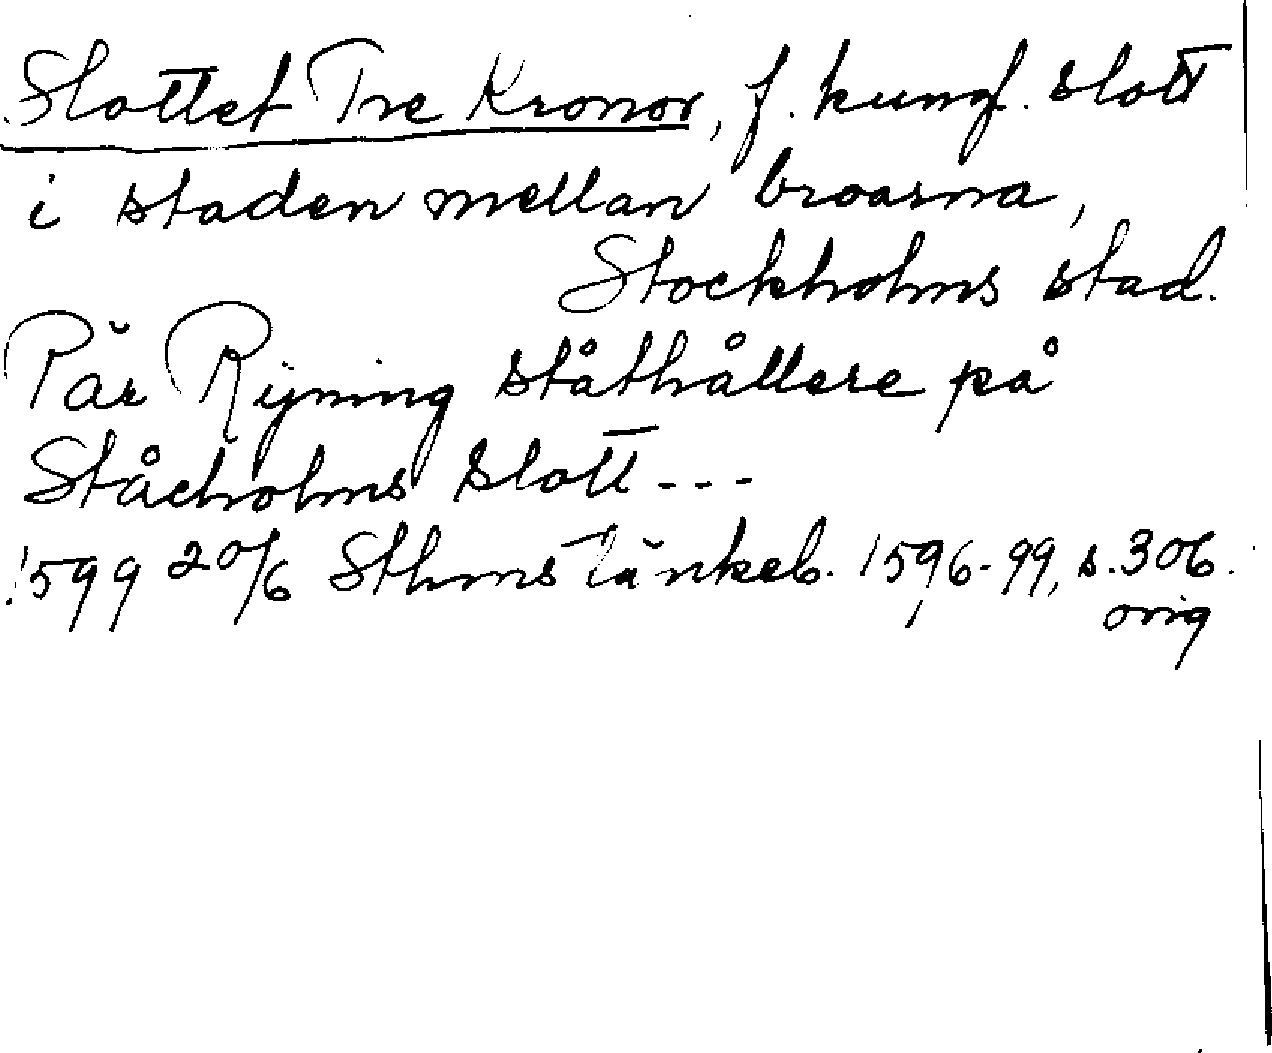 Slottet Tre Kronor, f. kungl. slott
i staden mellan broarna,
Stockholms stad.
Păr Rijning ståthållere på
Ståcholms slott ---
1599 20/6 Sthms Tănkeb. 1596-99, s. 306.
orig